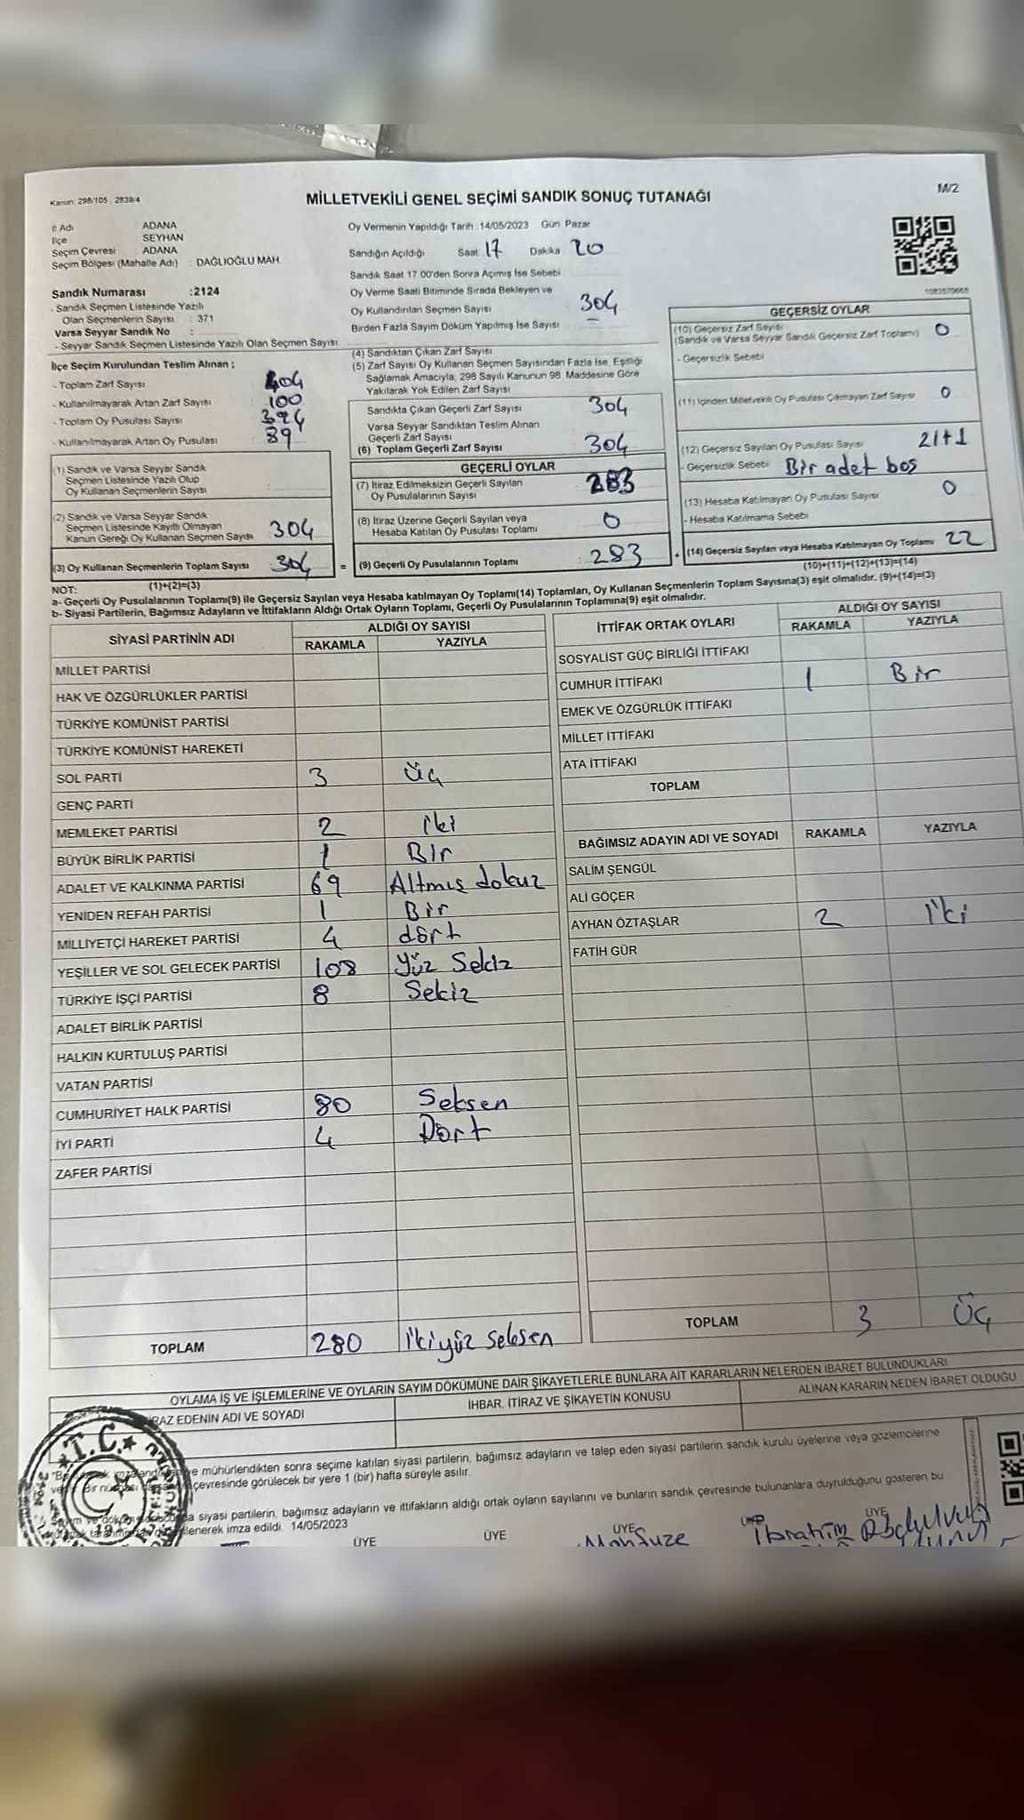 Kanun: 298/105 , 2839/4
MİLLETVEKİLİ GENEL SEÇİMİ SANDIK SONUÇ TUTANAĞI
M/2
İl Adı ADANA
İlçe SEYHAN
Seçim Çevresi ADANA
Seçim Bölgesi (Mahalle Adı) : DAĞLIOĞLU MAH
Sandık Numarası :2124
- Sandık Seçmen Listesinde Yazılı
Olan Seçmenlerin Sayısı : 371
Varsa Seyyar Sandık No :
- Seyyar Sandık Seçmen Listesinde Yazılı Olan Seçmen Sayısı
Oy Vermenin Yapıldığı Tarih :14/05/2023 Gün Pazar
Sandığın Açıldığı Saat 17 Dakika 20
Sandık Saat 17 00'den Sonra Açımış İse Sebebi
Oy Verme Saati Bitiminde Sırada Bekleyen ve
Oy Kullandırılan Seçmen Sayısı 304
Birden Fazla Sayım Döküm Yapılmış İse Sayısı
İlçe Seçim Kurulundan Teslim Alınan :
- Toplam Zarf Sayısı 404
- Kullanılmayarak Artan Zarf Sayısı 100
- Toplam Oy Pusulası Sayısı 394
- Kullanılmayarak Artan Oy Pusulası 89
(1) Sandık ve Varsa Seyyar Sandık
Seçmen Listesinde Yazılı Olup
Oy Kullanan Seçmenlerin Sayısı
(2) Sandık ve Varsa Seyyar Sandık
Seçmen Listesinde Kayıtlı Olmayan
Kanun Gereği Oy Kullanan Seçmen Sayısı 304
(3) Oy Kullanan Seçmenlerin Toplam Sayısı 304 =
(1)+(2)=(3)
(4) Sandıktan Çıkan Zarf Sayısı
(5) Zarf Sayısı Oy Kullanan Seçmen Sayısından Fazla İse, Eşitliği
Sağlamak Amacıyla, 298 Sayılı Kanunun 98. Maddesine Göre
Yakılarak Yok Edilen Zarf Sayısı
Sandıkta Çıkan Geçerli Zarf Sayısı 304
Varsa Seyyar Sandıktan Teslim Alınan
Geçerli Zarf Sayısı
(6) Toplam Geçerli Zarf Sayısı 304
GEÇERLİ OYLAR
(7) İtiraz Edilmeksizin Geçerli Sayılan
Oy Pusulalarının Sayısı 283
(8) İtiraz Üzerine Geçerli Sayılan veya
Hesaba Katılan Oy Pusulası Toplamı 0
(9) Geçerli Oy Pusulalarının Toplamı 283 +
GEÇERSİZ OYLAR
(10) Geçersiz Zarf Sayısı
(Sandık ve Varsa Seyyar Sandık Geçersiz Zarf Toplamı) 0
- Geçersizlik Sebebi
(11) İçinden Milletvekili Oy Pusulası Çıkmayan Zarf Sayısı 0
(12) Geçersiz Sayılan Oy Pusulası Sayısı 21+1
- Geçersizlik Sebebi Bir adet boş
(13) Hesaba Katılmayan Oy Pusulası Sayısı 0
- Hesaba Katılmama Sebebi
(14) Geçersiz Sayılan veya Hesaba Katılmayan Oy Toplamı 22
(10)+(11)+(12)+(13)=(14)
NOT:
a- Geçerli Oy Pusulalarının Toplamı(9) ile Geçersiz Sayılan veya Hesaba katılmayan Oy Toplamı(14) Toplamları, Oy Kullanan Seçmenlerin Toplam Sayısına(3) eşit olmalıdır. (9)+(14)=(3)
b- Siyasi Partilerin, Bağımsız Adayların ve İttifakların Aldığı Ortak Oyların Toplamı, Geçerli Oy Pusulalarının Toplamına(9) eşit olmalıdır.
SİYASİ PARTİNİN ADI
ALDIĞI OY SAYISI
RAKAMLA YAZIYLA
MİLLET PARTİSİ
HAK VE ÖZGÜRLÜKLER PARTİSİ
TÜRKİYE KOMÜNİST PARTİSİ
TÜRKİYE KOMÜNİST HAREKETİ
SOL PARTİ 3 Üç
GENÇ PARTİ
MEMLEKET PARTİSİ 2 İki
BÜYÜK BİRLİK PARTİSİ 1 Bir
ADALET VE KALKINMA PARTİSİ 69 Altmış dokuz
YENİDEN REFAH PARTİSİ 1 Bir
MİLLİYETÇİ HAREKET PARTİSİ 4 dört
YEŞİLLER VE SOL GELECEK PARTİSİ 108 Yüz Sekiz
TÜRKİYE İŞÇİ PARTİSİ 8 Sekiz
ADALET BİRLİK PARTİSİ
HALKIN KURTULUŞ PARTİSİ
VATAN PARTİSİ
CUMHURİYET HALK PARTİSİ 80 Seksen
İYİ PARTİ 4 Dört
ZAFER PARTİSİ
TOPLAM 280 İkiyüz seksen
İTTİFAK ORTAK OYLARI
ALDIĞI OY SAYISI
RAKAMLA YAZIYLA
SOSYALİST GÜÇ BİRLİĞİ İTTİFAKI
CUMHUR İTTİFAKI 1 Bir
EMEK VE ÖZGÜRLÜK İTTİFAKI
MİLLET İTTİFAKI
ATA İTTİFAKI
TOPLAM
BAĞIMSIZ ADAYIN ADI VE SOYADI RAKAMLA YAZIYLA
SALİM ŞENGÜL
ALİ GÖÇER
AYHAN ÖZTAŞLAR 2 İki
FATİH GÜR
TOPLAM 3 Üç
OYLAMA İŞ VE İŞLEMLERİNE VE OYLARIN SAYIM DÖKÜMÜNE DAİR ŞİKAYETLERLE BUNLARA AİT KARARLARIN NELERDEN İBARET BULUNDUKLARI
RAZ EDENİN ADI VE SOYADI İHBAR, İTİRAZ VE ŞİKAYETİN KONUSU ALINAN KARARIN NEDEN İBARET OLDUĞU
T.C.
ve mühürlendikten sonra seçime katılan siyasi partilerin, bağımsız adayların ve talep eden siyasi partilerin sandık kurulu üyelerine veya gözlemcilerine
çevresinde görülecek bir yere 1 (bir) hafta süreyle asılır.
siyasi partilerin, bağımsız adayların ve ittifakların aldığı ortak oyların sayılarını ve bunların sandık çevresinde bulunanlara duyrulduğunu gösteren bu
lenerek imza edildi. 14/05/2023
ÜYE ÜYE ÜYE ÜYE
Mahfuze İbrahim